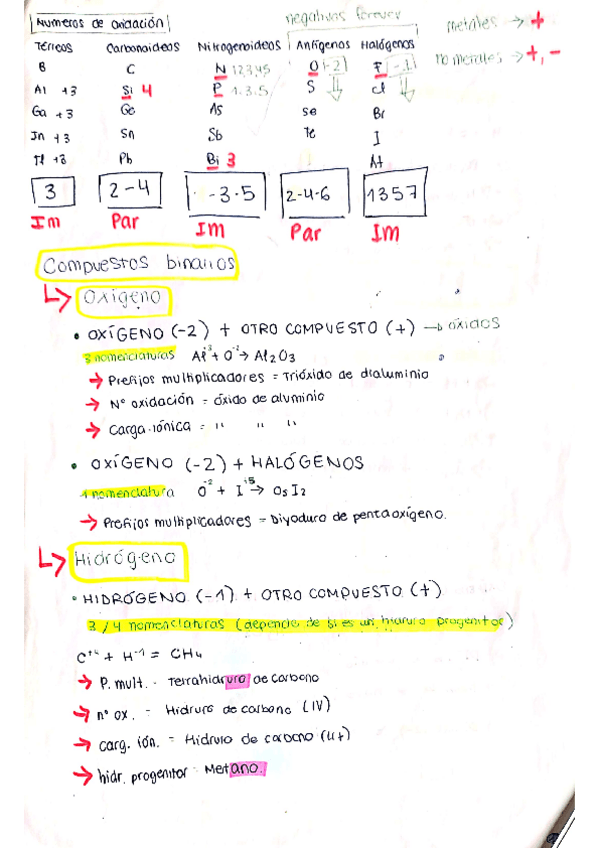 Números de oxidación
negativas forever
metales → +
no metales → +, -
Térreos Carbonoideos Nitrogenoideos Anfígenos Halógenos
B C N 12345 O (-2) F (-1)
Al +3 Si 4 P 1.3.5 S Cl
Ga +3 Ge As Se Br
In +3 Sn Sb Te I
Tl +3 Pb Bi 3 At
3 2-4 -3.5 2-4-6 1357
Im Par Im Par Im
Compuestos binarios
↳ Oxígeno
• OXÍGENO (-2) + OTRO COMPUESTO (+) → óxidos
3 nomenclaturas Al⁺³ + O⁻² → Al₂O₃
→ Prefijos multiplicadores = Trióxido de dialuminio
→ Nº oxidación = óxido de aluminio
→ Carga iónica = " " "
• OXÍGENO (-2) + HALÓGENOS
1 nomenclatura O⁻² + I⁺⁵ → O₅I₂
→ Prefijos multiplicadores = Diyoduro de pentaoxígeno.
↳ Hidrógeno
• HIDRÓGENO (-1) + OTRO COMPUESTO (+)
3/4 nomenclaturas (depende de si es un hidruro progenitor)
C⁺⁴ + H⁻¹ = CH₄
→ P. mult. - Tetrahidruro de carbono
→ nº ox. = Hidruro de carbono (IV)
→ carg. ión. = Hidruro de carbono (4+)
→ hidr. progenitor - Metano.